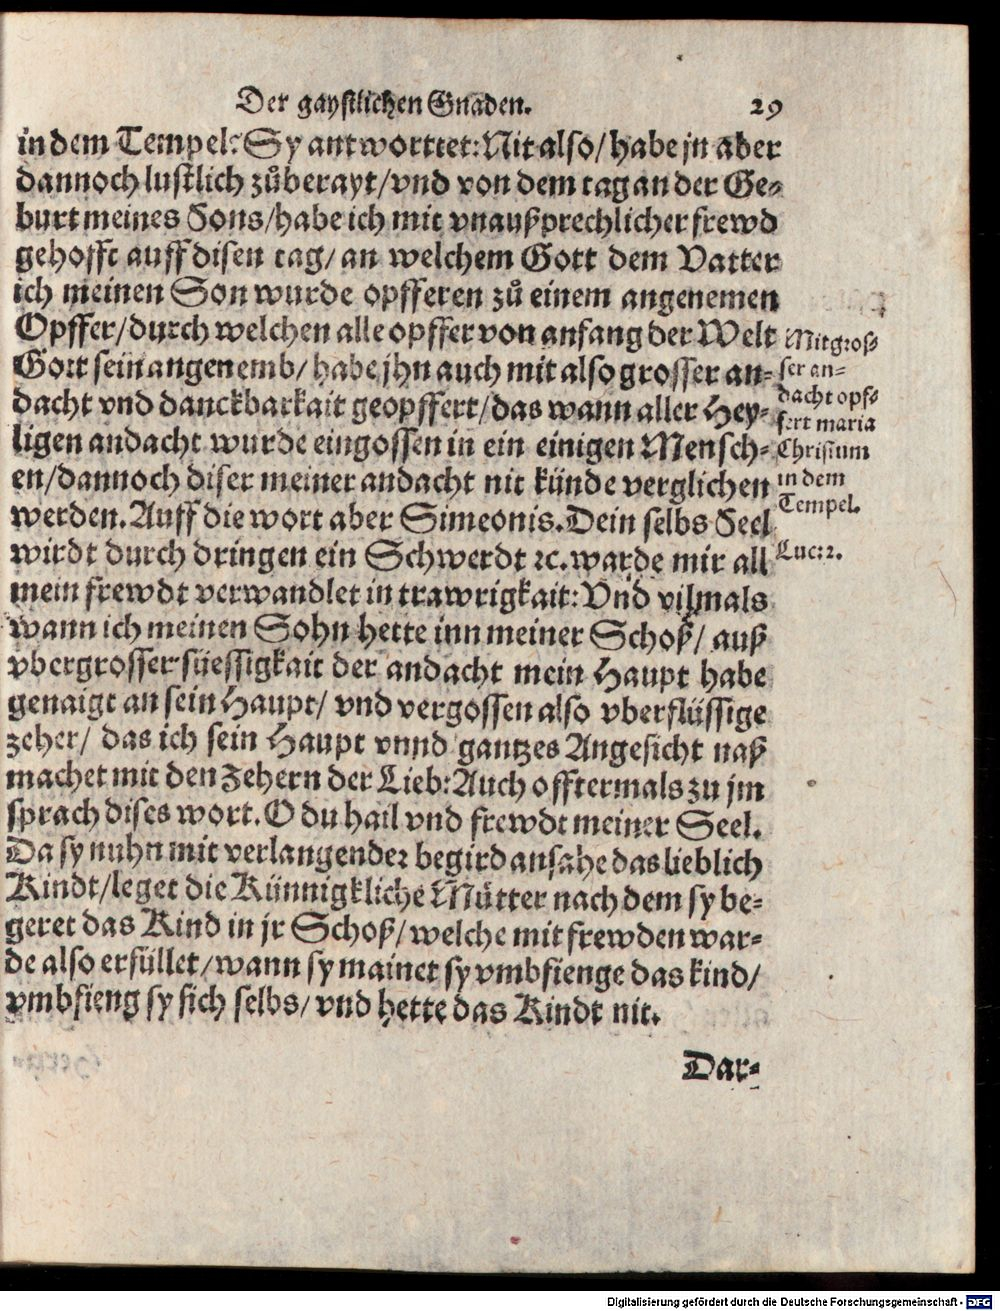 Der gaystlichen Gnaden. 29
in dem Tempel? Sy antworttet: Nit also/ habe jn aber
dannoch lustlich zůberayt/ vnd von dem tag an der Ge-
burt meines Sons/ habe ich mit vnaußprechlicher frewd
gehofft auff disen tag/ an welchem Gott dem Vatter
ich meinen Son wurde opfferen zů einem angenemen
Opffer/ durch welchen alle opffer von anfang der Welt
Gott sein angenemb/ habe jhn auch mit also grosser an-
dacht vnd danckbarkait geopffert/ das wann aller Hey-
ligen andacht wurde eingossen in ein einigen Mensch-
en/ dannoch diser meiner andacht nit künde verglichen
werden. Auff die wort aber Simeonis. Dein selbs Seel
wirdt durch dringen ein Schwerdt ꝛc. warde mir all
mein frewdt verwandlet in trawrigkait: Vnd vilmals
wann ich meinen Sohn hette inn meiner Schoß/ auß
vbergrosser süessigkait der andacht mein Haupt habe
genaigt an sein Haupt/ vnd vergossen also vberflüssige
zeher/ das ich sein Haupt vnnd gantzes Angesicht naß
machet mit den Zehern der Lieb: Auch offtermals zu jm
sprach dises wort. O du hail vnd frewdt meiner Seel.
Da sy nuhn mit verlangender begird ansahe das lieblich
Kindt/ leget die Künnigkliche Mütter nach dem sy be-
geret das Kind in jr Schoß/ welche mit frewden war-
de also erfüllet/ wann sy mainet sy vmbfienge das kind/
vmbfieng sy sich selbs/ vnd hette das Kindt nit.
Dar-
Mit gros-
ser an-
dacht opf-
fert maria
Christum
in dem
Tempel.
Luc: 2.
Digitalisierung gefördert durch die Deutsche Forschungsgemeinschaft - DFG